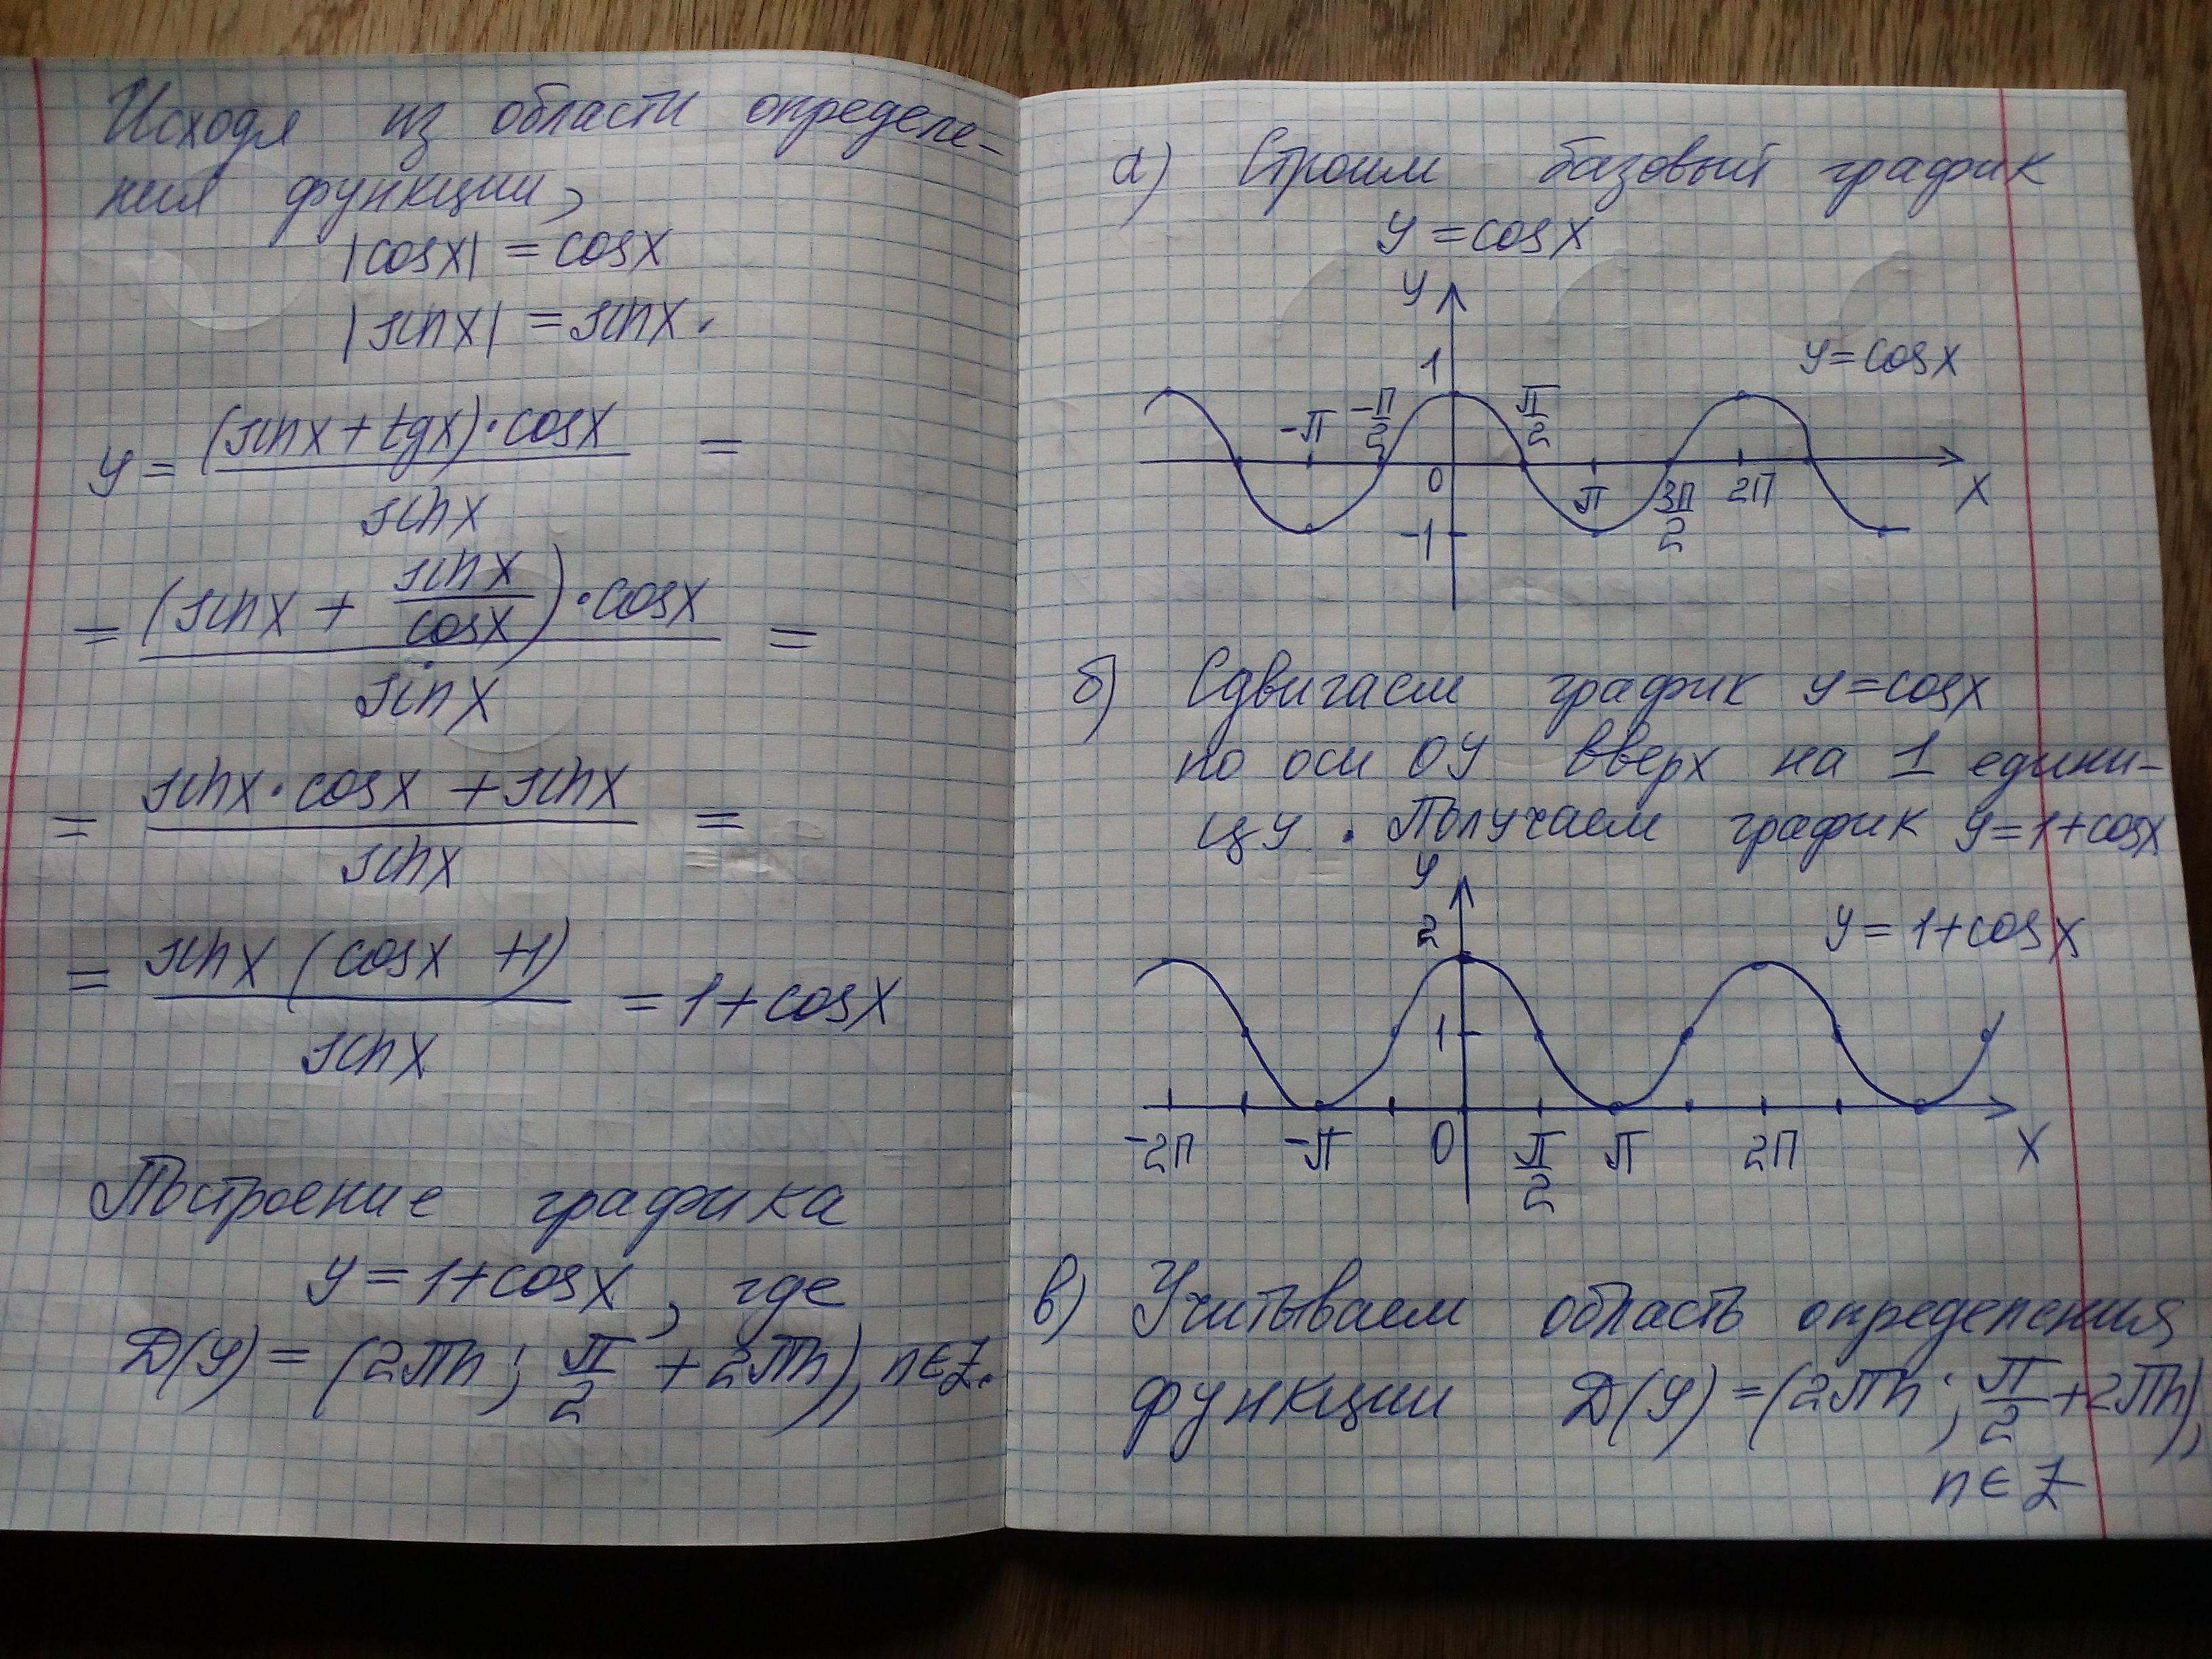 Исходя из области определе-
ния функции,
|cosx| = cosx
|sinx| = sinx.
y = (sinx + tgx)·cosx / sinx =
= (sinx + sinx/cosx)·cosx / sinx =
= sinx·cosx + sinx / sinx =
= sinx (cosx + 1) / sinx = 1 + cosx
Построение графика
y = 1 + cosx, где
D(y) = (2πn; π/2 + 2πn), n∈Z.
а) Строим базовый график
y = cosx
y
1
y = cosx
-π -π/2 π/2
0 π 3π/2 2π x
-1
б) Сдвигаем график y = cosx
по оси OY вверх на 1 едини-
цу. Получаем график y = 1 + cosx
y
2
y = 1 + cosx
1
-2π -π 0 π/2 π 2π x
в) Учитываем область определения
функции D(y) = (2πn; π/2 + 2πn),
n∈Z